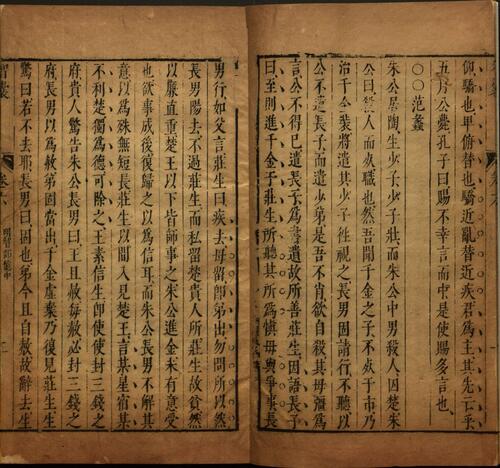 仰驕也卑俯替也驕近亂替近疾君為主其先亡乎
五月公薨孔子曰賜不幸言而中是使賜多言也
○○范蠡
朱公居陶生少子少子壯而朱公中男殺人囚楚朱
公曰殺人而死職也然吾聞千金之子不死于市乃
治千金裝將遣其少子徃視之長男固請行不聽以
公不遣長子而遣少弟是吾不肖欲自殺其母彊為
言公不得已遣長子為書遺故所善莊生因語長子
曰至則進千金于莊生所聽其所為慎毋與爭事長
男行如父言莊生曰疾去毋留即弟出勿問所以然
長男陽去不過莊生而私留楚貴人所莊生故貧然
以廉直重楚王以下皆師事之朱公進金未有意受
也欲事成後復歸之以為信耳而朱公長男不解其
意以為殊無短長莊生以間入見楚王言某星宿某
不利楚獨為德可除之王素信生即使使封三錢之
府貴人驚告朱公長男曰王且赦每赦必封三錢之
府長男以為赦弟固當出千金虛棄乃復見莊生生
驚曰若不去耶長男曰固也弟今且自赦故辭去生
智囊
卷六
明智部億中